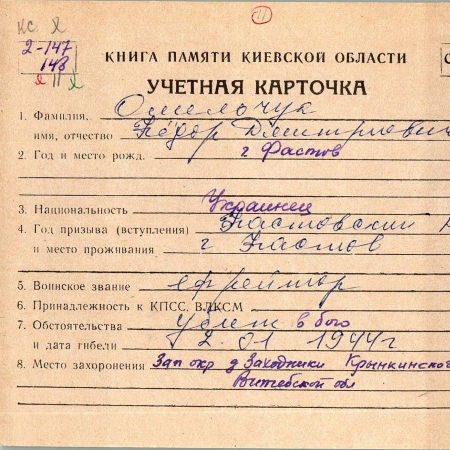 КС. Я
11
2-147
148
КНИГА ПАМЯТИ КИЕВСКОЙ ОБЛАСТИ
УЧЕТНАЯ КАРТОЧКА
1. Фамилия, Омельчук
имя, отчество Фёдор Дмитриевич
2. Год и место рожд. г Фастов
3. Национальность Украинец
4. Год призыва (вступления) Фастовский
и место проживания г Фастов
5. Воинское звание ефрейтор
6. Принадлежность к КПСС, ВЛКСМ
7. Обстоятельства Убит в бою
и дата гибели 2. 01 1944 г
8. Место захоронения Зап окр д Заходники Крынкинского
Витебской обл